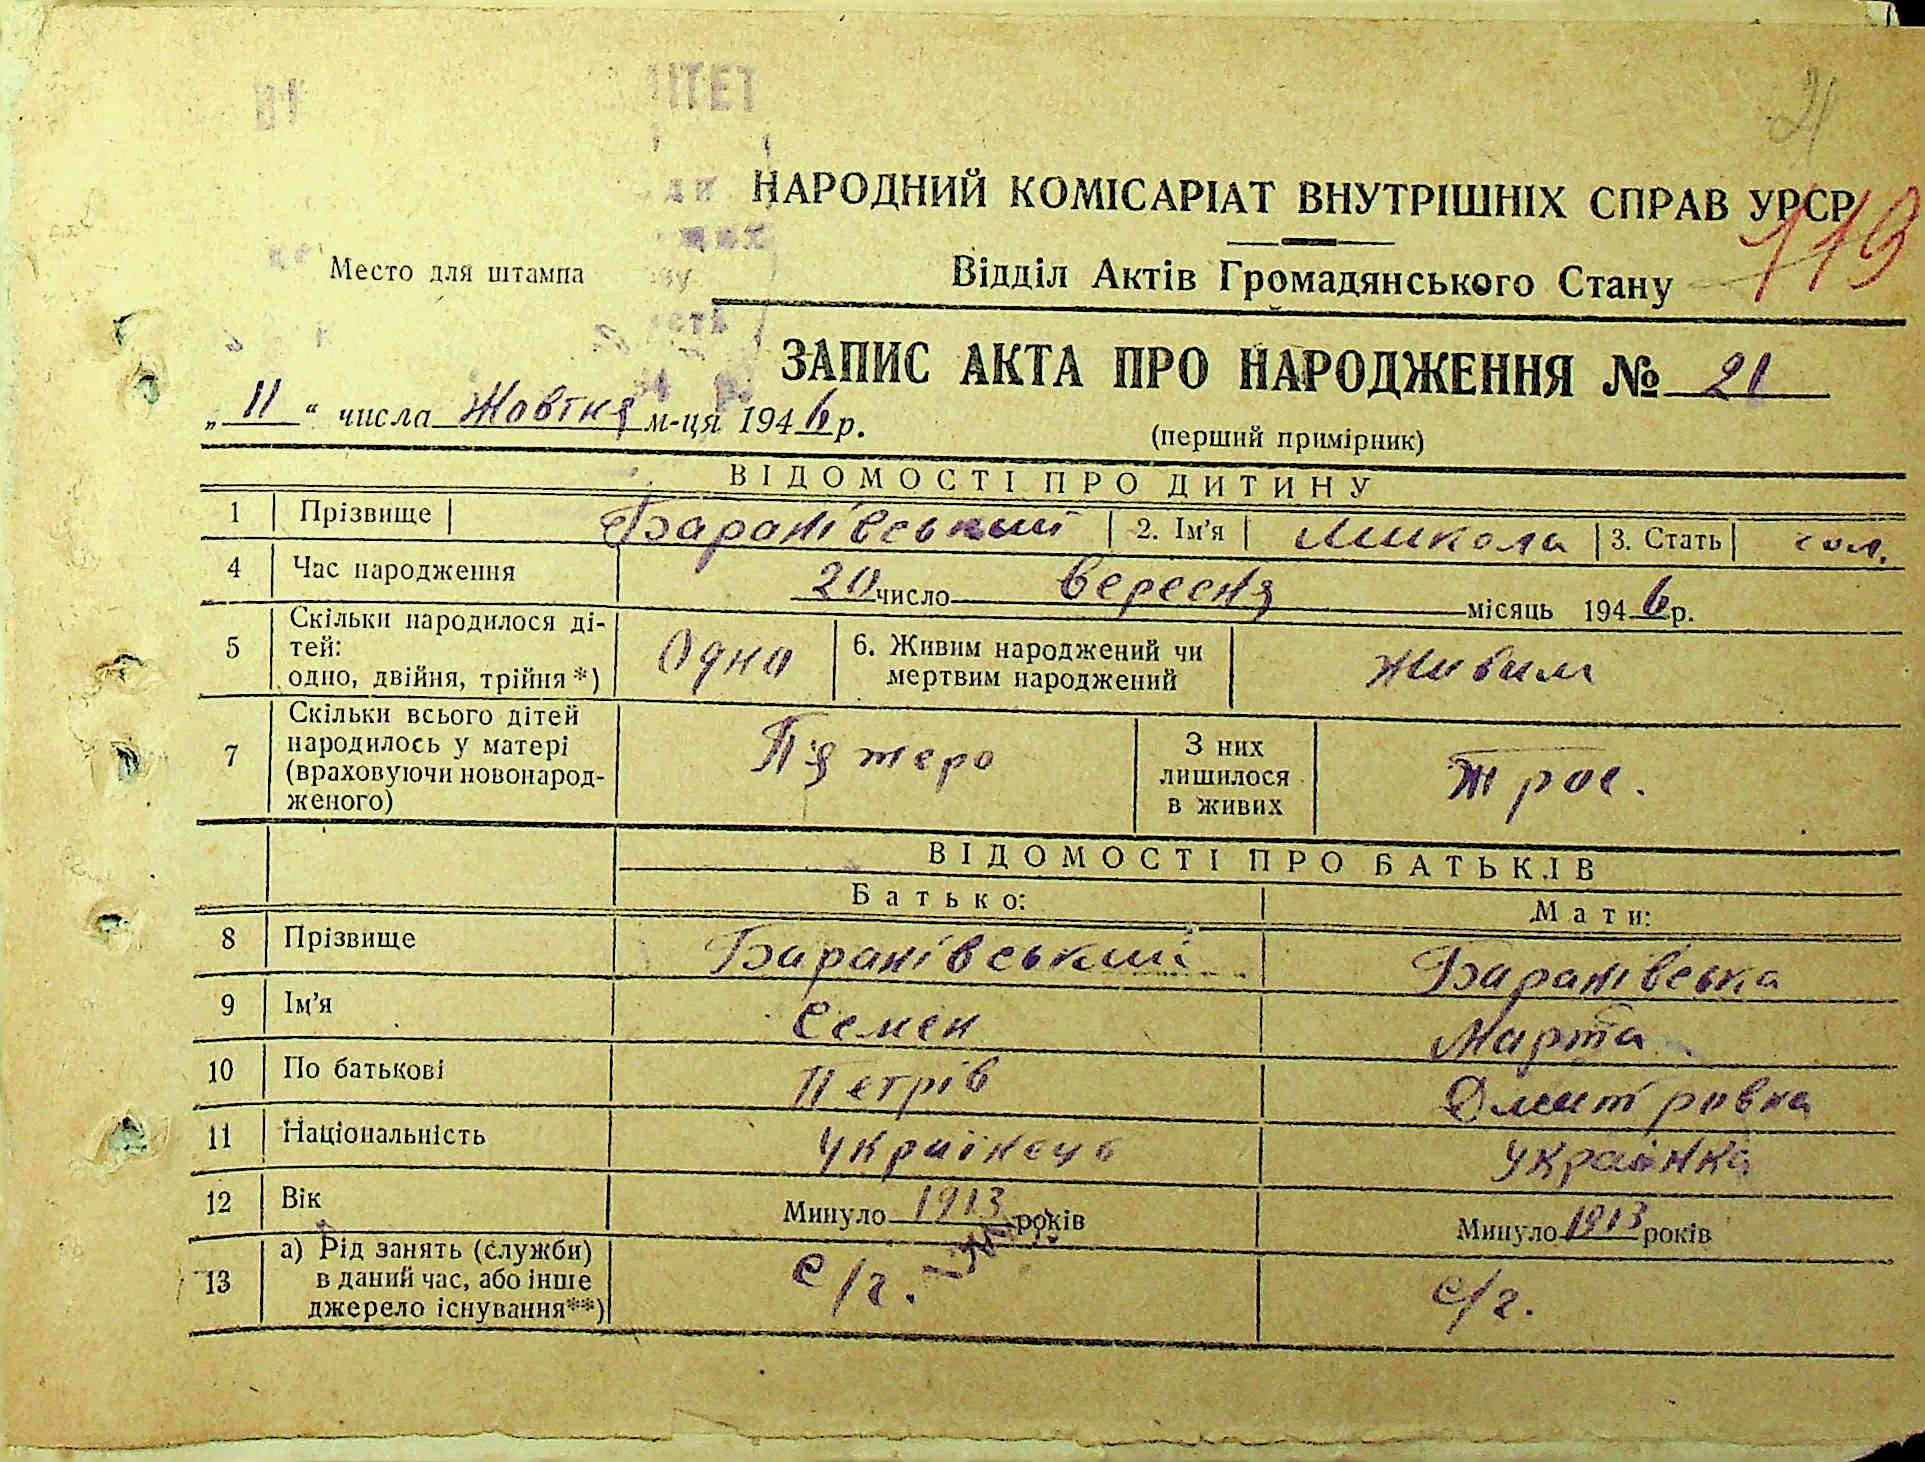 ІТЕТ
21
НАРОДНИЙ КОМІСАРІАТ ВНУТРІШНІХ СПРАВ УРСР
119
Место для штампа
Відділ Актів Громадянського Стану
ЗАПИС АКТА ПРО НАРОДЖЕННЯ № 21
„11“ числа Жовтня м-ця 1946 р.
(перший примірник)
ВІДОМОСТІ ПРО ДИТИНУ
1 Прізвище Баранівський 2. Ім'я Микола 3. Стать чол.
4 Час народження 20 число вересня місяць 1946 р.
5 Скільки народилося ді-
тей:
одно, двійня, трійня *) Одна 6. Живим народжений чи
мертвим народжений живим
7 Скільки всього дітей
народилось у матері
(враховуючи новонарод-
женого) П'ятеро З них
лишилося
в живих троє.
ВІДОМОСТІ ПРО БАТЬКІВ
Батько: Мати:
8 Прізвище Баранівський Баранівська
9 Ім'я Семен Марта
10 По батькові Петрів Дмитровна
11 Національність українець українка
12 Вік Минуло 1913 років Минуло 1913 років
13 а) Рід занять (служби)
в даний час, або інше
джерело існування**) с/г. с/г.